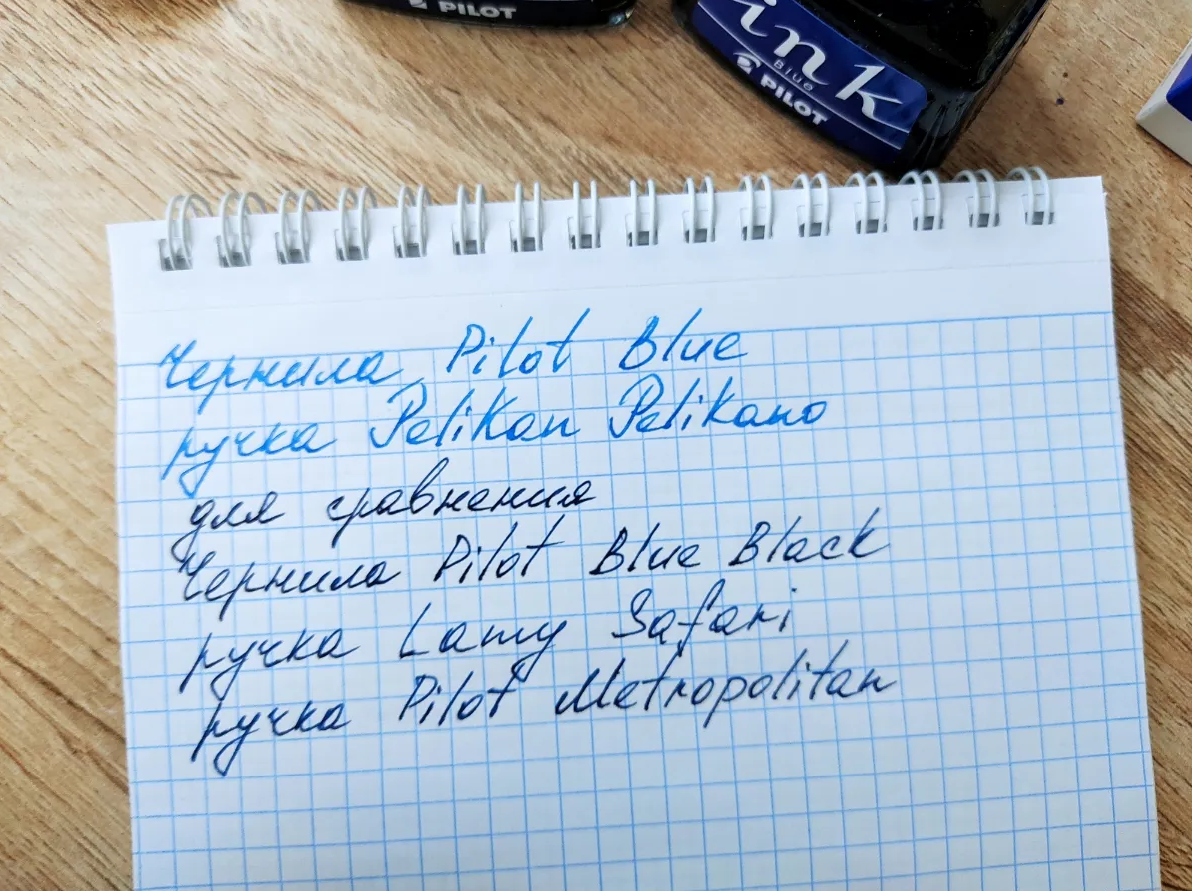 PILOT
ink
Blue
PILOT
Чернила Pilot Blue
ручка Pelikan Pelikano
для сравнения
Чернила Pilot Blue Black
ручка Lamy Safari
ручка Pilot Metropolitan